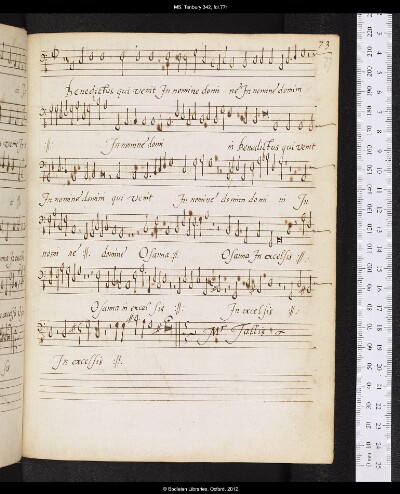 MS. Tenbury 342, fol.77r
73
Benedictus qui venit In nomine domi ne In nomine domini
:ij: In nomine domi ni benedictus qui venit
In nomine domini qui venit In nomine domini domi ni In
nomi ne :ij: domine Osanna :ij: Osanna In excelsis :ij:
Osanna in excel sis :ij: In excelsis :ij:
Mr Tallis
In excelsis :ij:
© Bodleian Libraries, Oxford, 2012